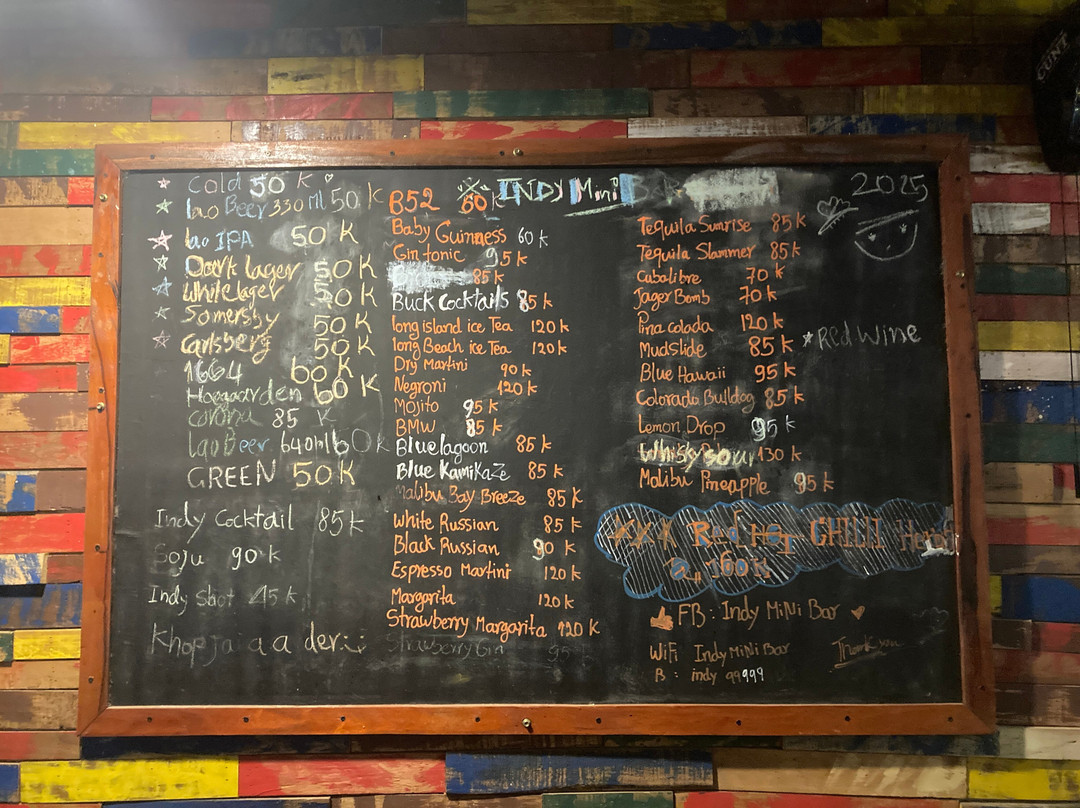 Cold 50 K
lao Beer 330 ml 50 K
lao IPA 50 K
Dark lager 50 K
White lager 50 K
Somersby 50 K
Carlsberg 50 K
1664 60 K
Hogaarden 60 K
corona 85 K
lao Beer 640 ml 60 K
GREEN 50 K
Indy Cocktail 85 K
Soju 90 K
Indy Shot 45 K
Khop jai a a der
INDY Mini
2025
B52 60 K
Baby Guinness 60 K
Gin tonic 95 K
85 K
Buck Cocktails 85 K
long island ice Tea 120 K
long Beach ice Tea 120 K
Dry Martini 90 K
Negroni 120 K
Mojito 95 K
BMW 85 K
Blue lagoon 85 K
Blue Kamikaze 85 K
Malibu Bay Breeze 85 K
White Russian 85 K
Black Russian 90 K
Espresso Martini 120 K
Margarita 120 K
Strawberry Margarita 120 K
Strawberry Gin
Tequila Sunrise 85 K
Tequila Slammer 85 K
Cubalibre 70 K
Jager Bomb 70 K
Pina colada 120 K
Mudslide 85 K
Blue Hawaii 95 K
Colorado Bulldog 85 K
Lemon Drop 95 K
Whisky Sour 130 K
Malibu Pineapple 95 K
Red Wine
XXX Red HOT CHILII
160 K
FB : Indy MiNi Bar
WiFi Indy MiNi Bar
P : indy 99999
Thank you